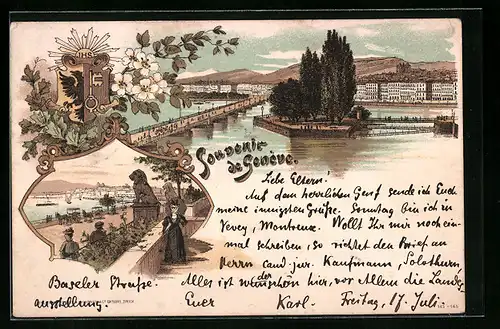 IHS
Souvenir
de Genève.
Liebe Eltern!
Auf dem herrlichen Genf sende ich Euch
meine innigsten Grüße. Sonntag bin ich in
Vevey, Montreux. Wollt Ihr mir noch ein-
mal schreiben, so richtet den Brief an
Herrn cand. jur. Kaufmann, Solothurn
Baseler Straße. Alles ist wunderschön hier, vor Allem die Landes-
ausstellung. Euer Karl. Freitag, 17. Juli.